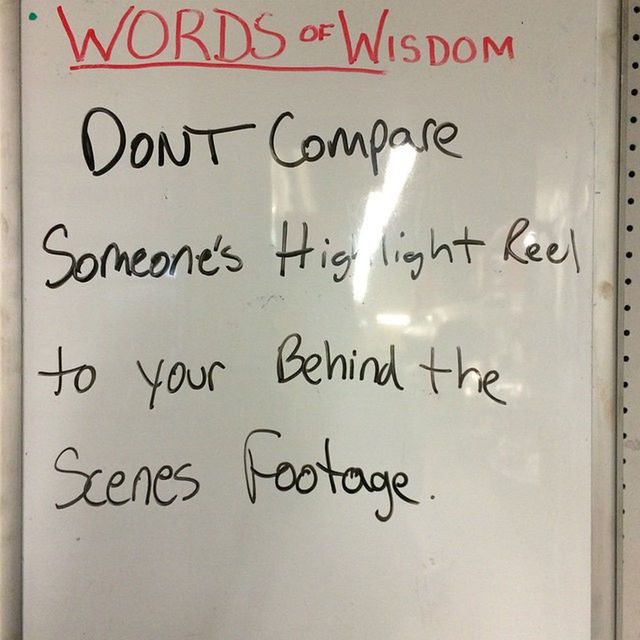 WORDS OF WISDOM
DONT Compare
Someone's Highlight Reel
to your Behind the
Scenes Footage.